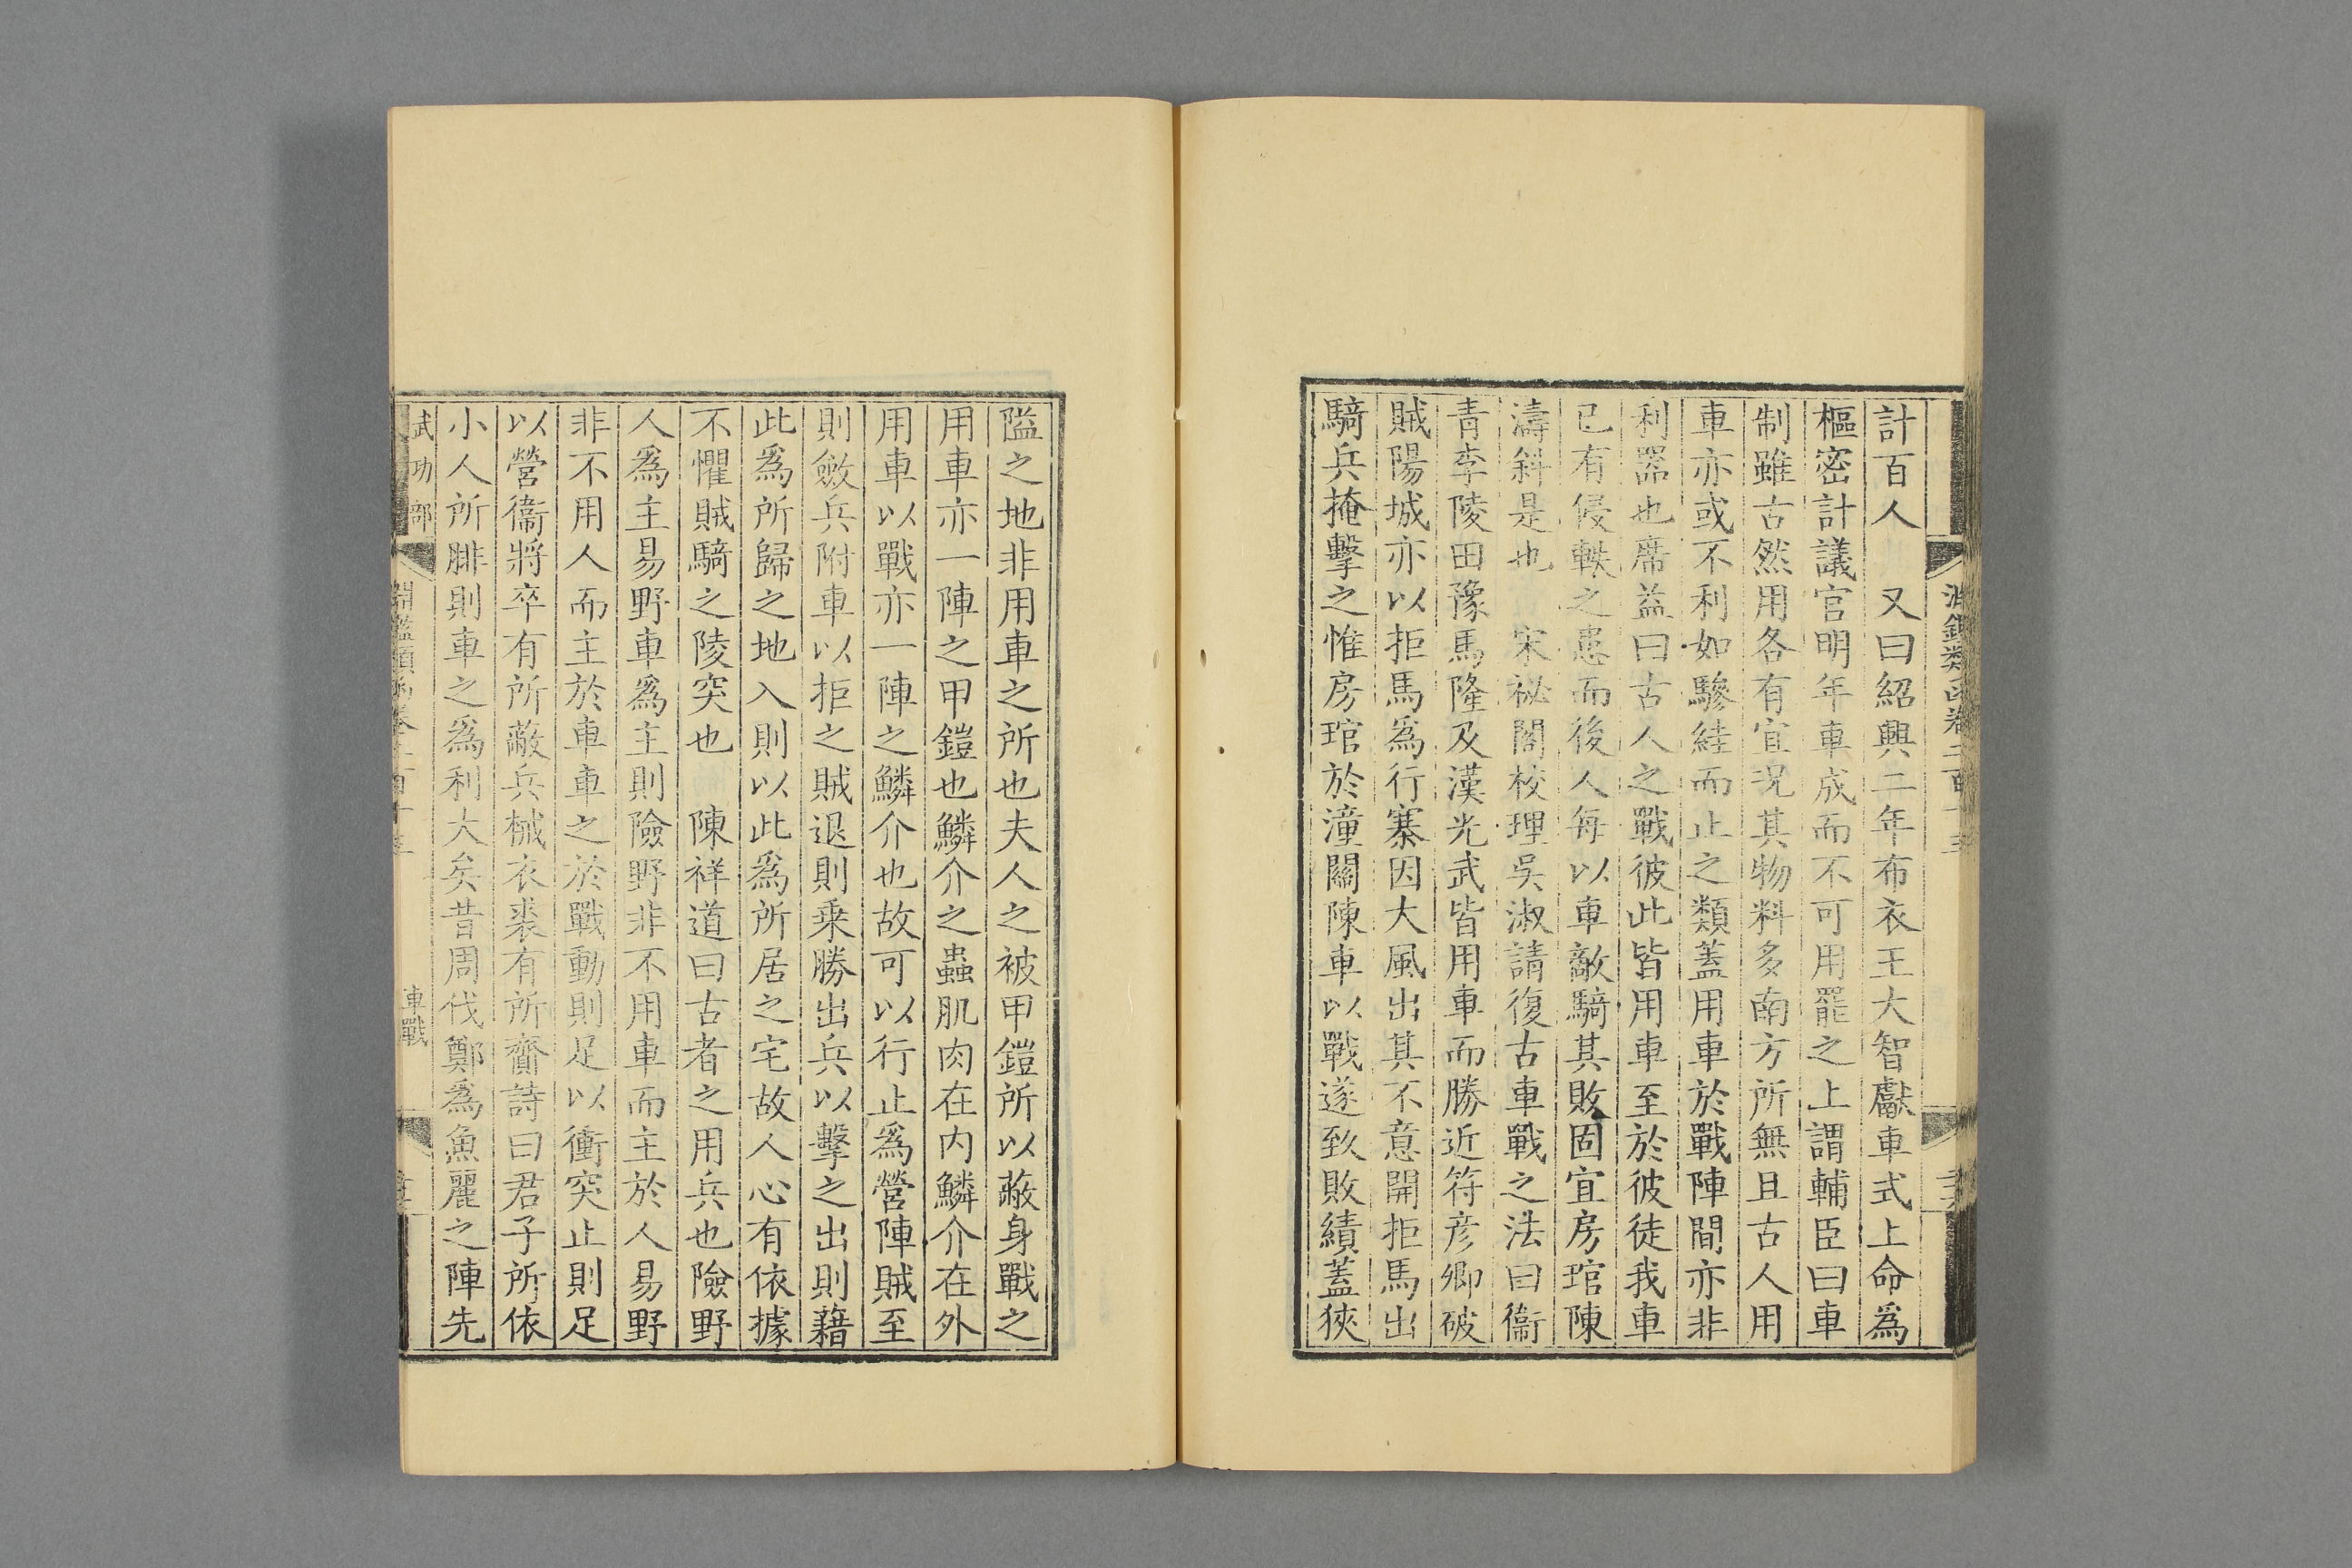 淵鑑類函卷二百十三
計百人　又曰紹興二年布衣王大智獻車式上命爲
樞密計議官明年車成而不可用罷之上謂輔臣曰車
制雖古然用各有宜況其物料多南方所無且古人用
車亦或不利如驂絓而止之類蓋用車於戰陣間亦非
利器也席益曰古人之戰彼此皆用車至於彼徒我車
已有侵軼之患而後人每以車敵騎其敗固宜房琯陳
濤斜是也　宋祕閣校理吳淑請復古車戰之法曰衞
青李陵田豫馬隆及漢光武皆用車而勝近符彦卿破
賊陽城亦以拒馬爲行寨因大風出其不意開拒馬出
騎兵掩擊之惟房琯於潼關陳車以戰遂致敗績蓋狹
隘之地非用車之所也夫人之被甲鎧所以蔽身戰之
用車亦一陣之甲鎧也鱗介之蟲肌肉在内鱗介在外
用車以戰亦一陣之鱗介也故可以行止爲營陣賊至
則斂兵附車以拒之賊退則乘勝出兵以擊之出則藉
此爲所歸之地入則以此爲所居之宅故人心有依據
不懼賊騎之陵突也　陳祥道曰古者之用兵也險野
人爲主易野車爲主則險野非不用車而主於人易野
非不用人而主於車車之於戰動則足以衝突止則足
以營衞將卒有所蔽兵械衣裘有所齎詩曰君子所依
小人所腓則車之爲利大矣昔周伐鄭爲魚麗之陣先
武功部
淵鑑類函卷二百十三
車戰